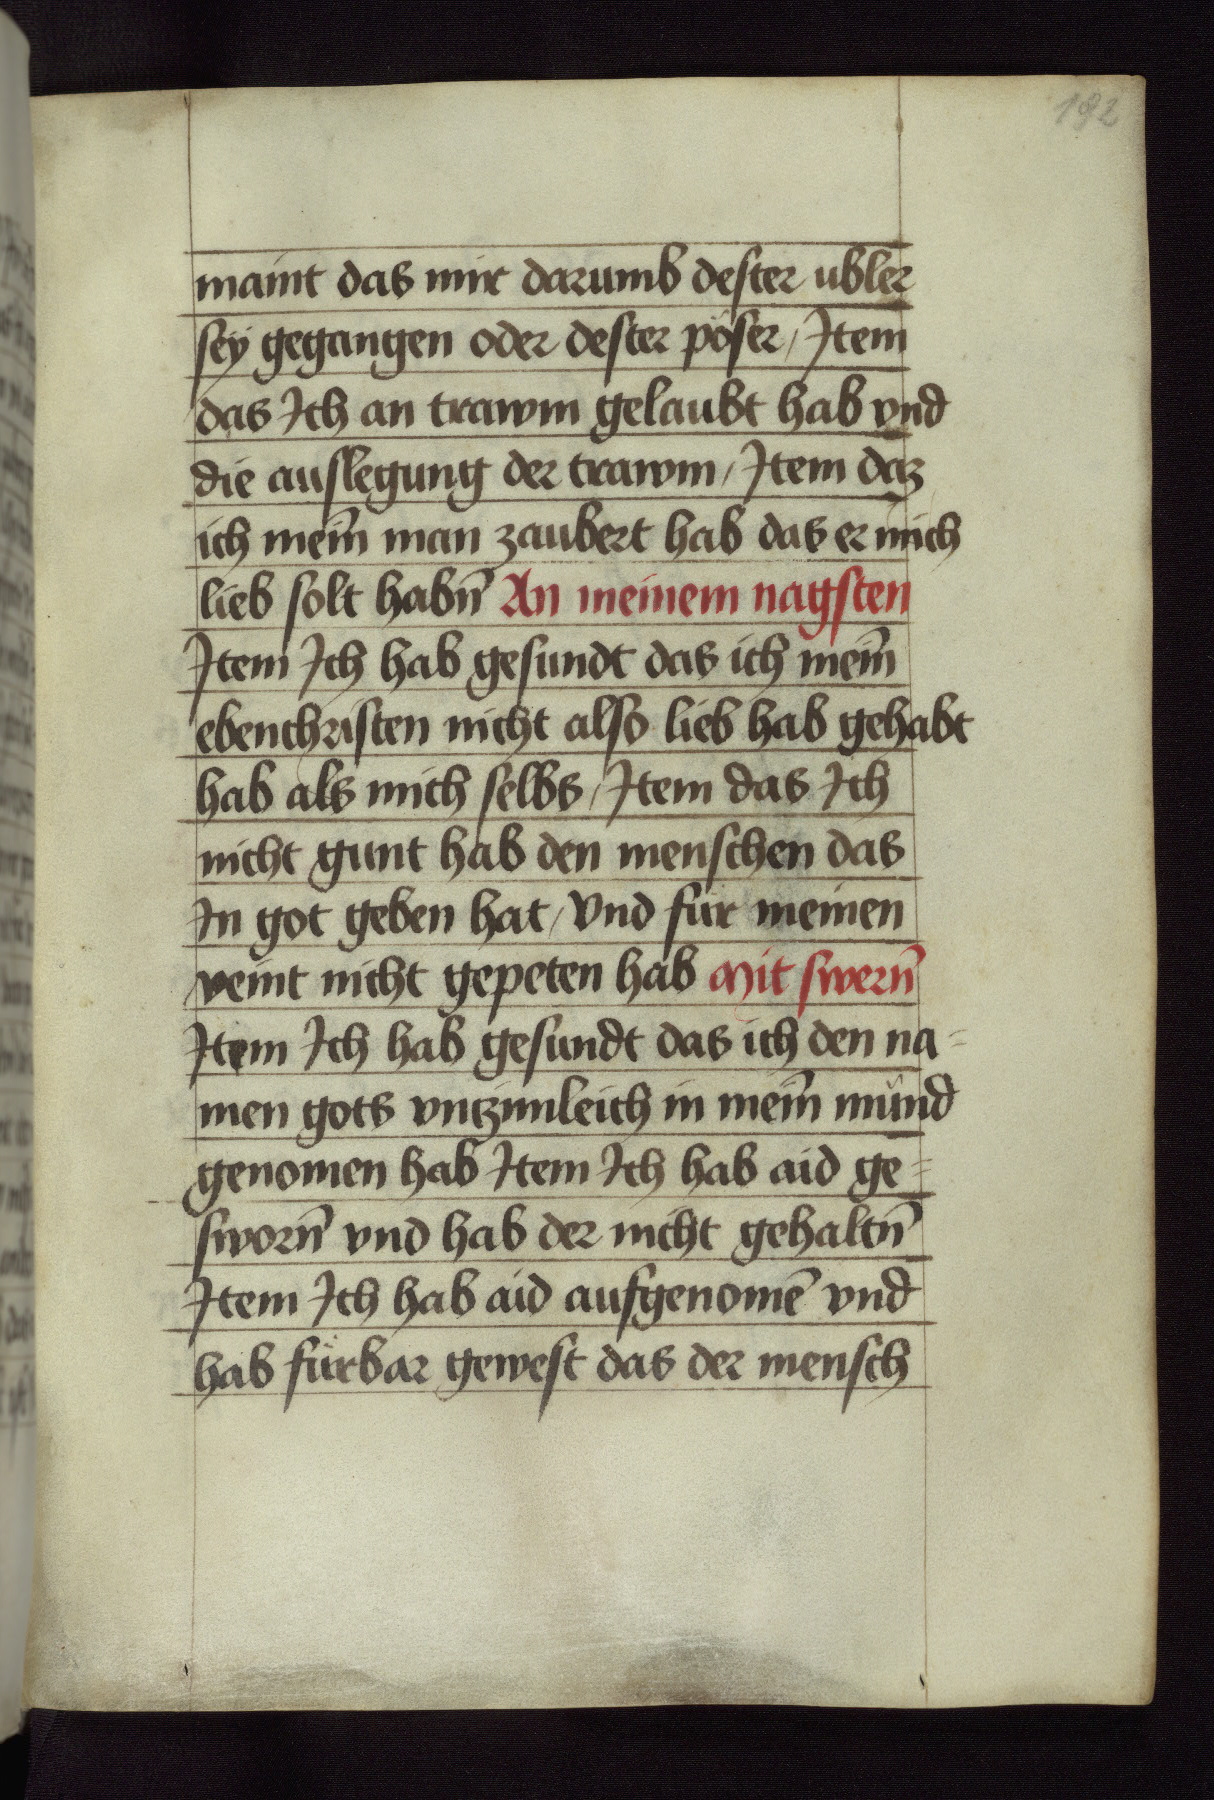 192
maint das mir darumb dester ubler
seÿ gegangen oder dester pöser / Item
das Ich an trawm gelaubt hab vnd
die auslegung der trawm / Item daz
ich mein̄ man zaubert hab das er mich
lieb solt habn̄ An meinem nagsten
Item Ich hab gesundt das ich mein̄
ebenchristen nicht also lieb hab gehabt
hab als mich selbs / Item das Ich
nicht gunt hab den menschen das
In got geben hat / Vnd für meinen
veint nicht gepeten hab Mit swern̄
Item Ich hab gesundt das ich den na=
men gots vntzimleich in mein̄ mund
genomen hab Item Ich hab aid ge=
sworn̄ vnd hab der nicht gehaltn̄
Item Ich hab aid aufgenomē vnd
hab fürbar gewest das der mensch